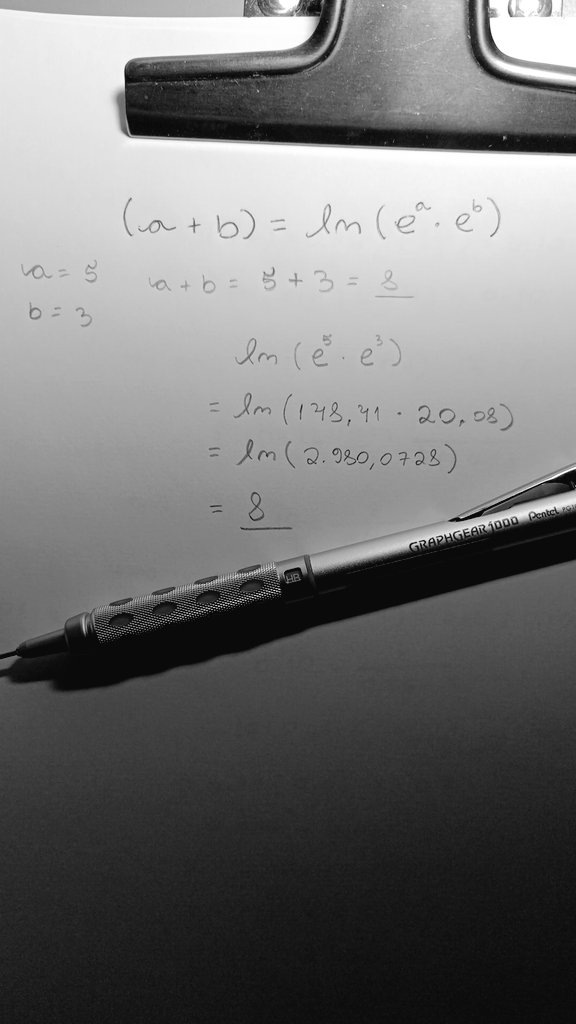 (a + b) = ln (eᵃ · eᵇ)
a = 5
b = 3
a + b = 5 + 3 = 8
ln (e⁵ · e³)
= ln (148,41 · 20,08)
= ln (2.980,0728)
= 8
GRAPHGEAR 1000 Pentel
HB